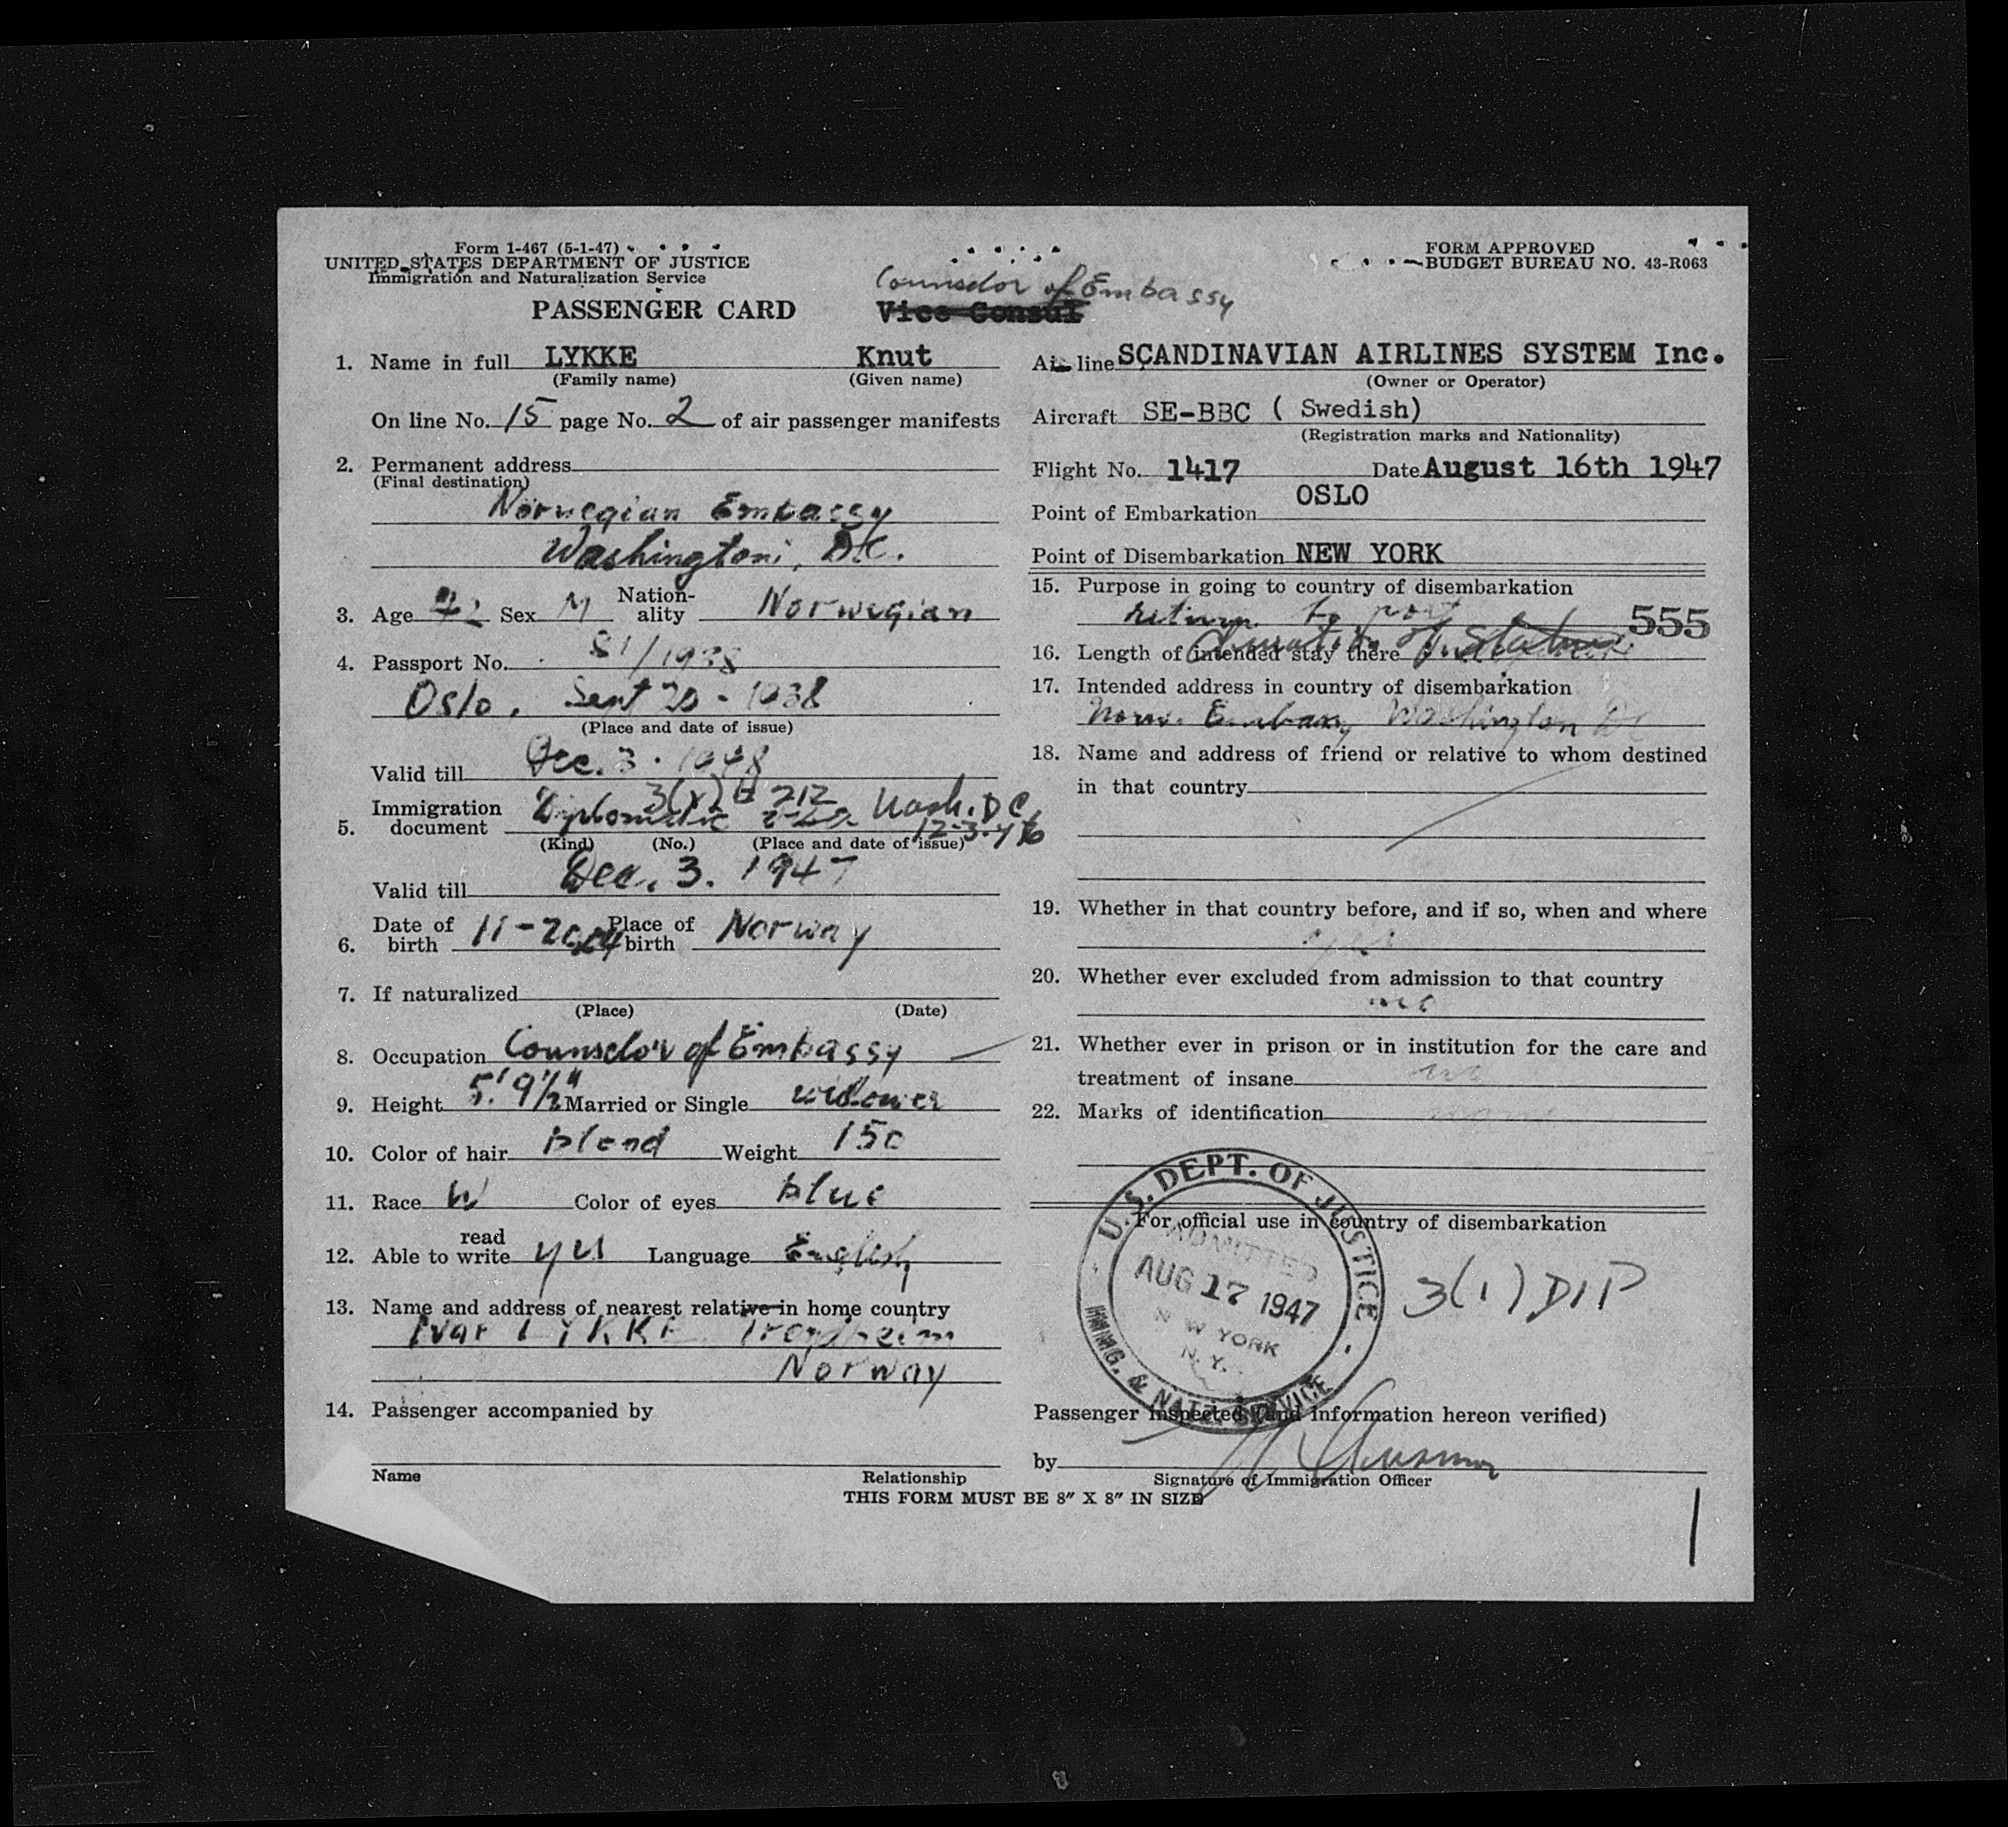 Form 1-467 (5-1-47)
UNITED STATES DEPARTMENT OF JUSTICE
Immigration and Naturalization Service
PASSENGER CARD
Counselor of Embassy
Vice Consul
FORM APPROVED
BUDGET BUREAU NO. 43-R063
1. Name in full LYKKE Knut
(Family name) (Given name)
On line No. 15 page No. 2 of air passenger manifests
2. Permanent address
(Final destination)
Norwegian Embassy
Washington, DC.
3. Age 42 Sex M Nation-ality Norwegian
4. Passport No. 81/1938
Oslo. Sept 20 - 1938
(Place and date of issue)
Valid till Dec. 3. 1948
5. Immigration document Diplomatic 3(1) 212 Wash. DC 12-3-46
(Kind) (No.) (Place and date of issue)
Valid till Dec. 3. 1947
6. Date of birth 11-20-04 Place of birth Norway
7. If naturalized
(Place) (Date)
8. Occupation Counselor of Embassy
9. Height 5' 9½" Married or Single widower
10. Color of hair blond Weight 150
11. Race W Color of eyes blue
12. Able to read write yes Language English
13. Name and address of nearest relative in home country
Ivar LYKKE Trondheim
Norway
14. Passenger accompanied by
Name Relationship
THIS FORM MUST BE 8" X 8" IN SIZE
Air line SCANDINAVIAN AIRLINES SYSTEM Inc.
(Owner or Operator)
Aircraft SE-BBC ( Swedish)
(Registration marks and Nationality)
Flight No. 1417 Date August 16th 1947
Point of Embarkation OSLO
Point of Disembarkation NEW YORK
15. Purpose in going to country of disembarkation
return to post 555
16. Length of intended stay there duration of status
17. Intended address in country of disembarkation
Norw. Embassy Washington DC
18. Name and address of friend or relative to whom destined
in that country
19. Whether in that country before, and if so, when and where
yes
20. Whether ever excluded from admission to that country
no
21. Whether ever in prison or in institution for the care and
treatment of insane no
22. Marks of identification none
For official use in country of disembarkation
U.S. DEPT. OF JUSTICE
ADMITTED
AUG 17 1947
NEW YORK
N.Y.
IMMIG. & NATZ. SERVICE
3(1) DIP
Passenger inspected (and information hereon verified)
by
Signature of Immigration Officer